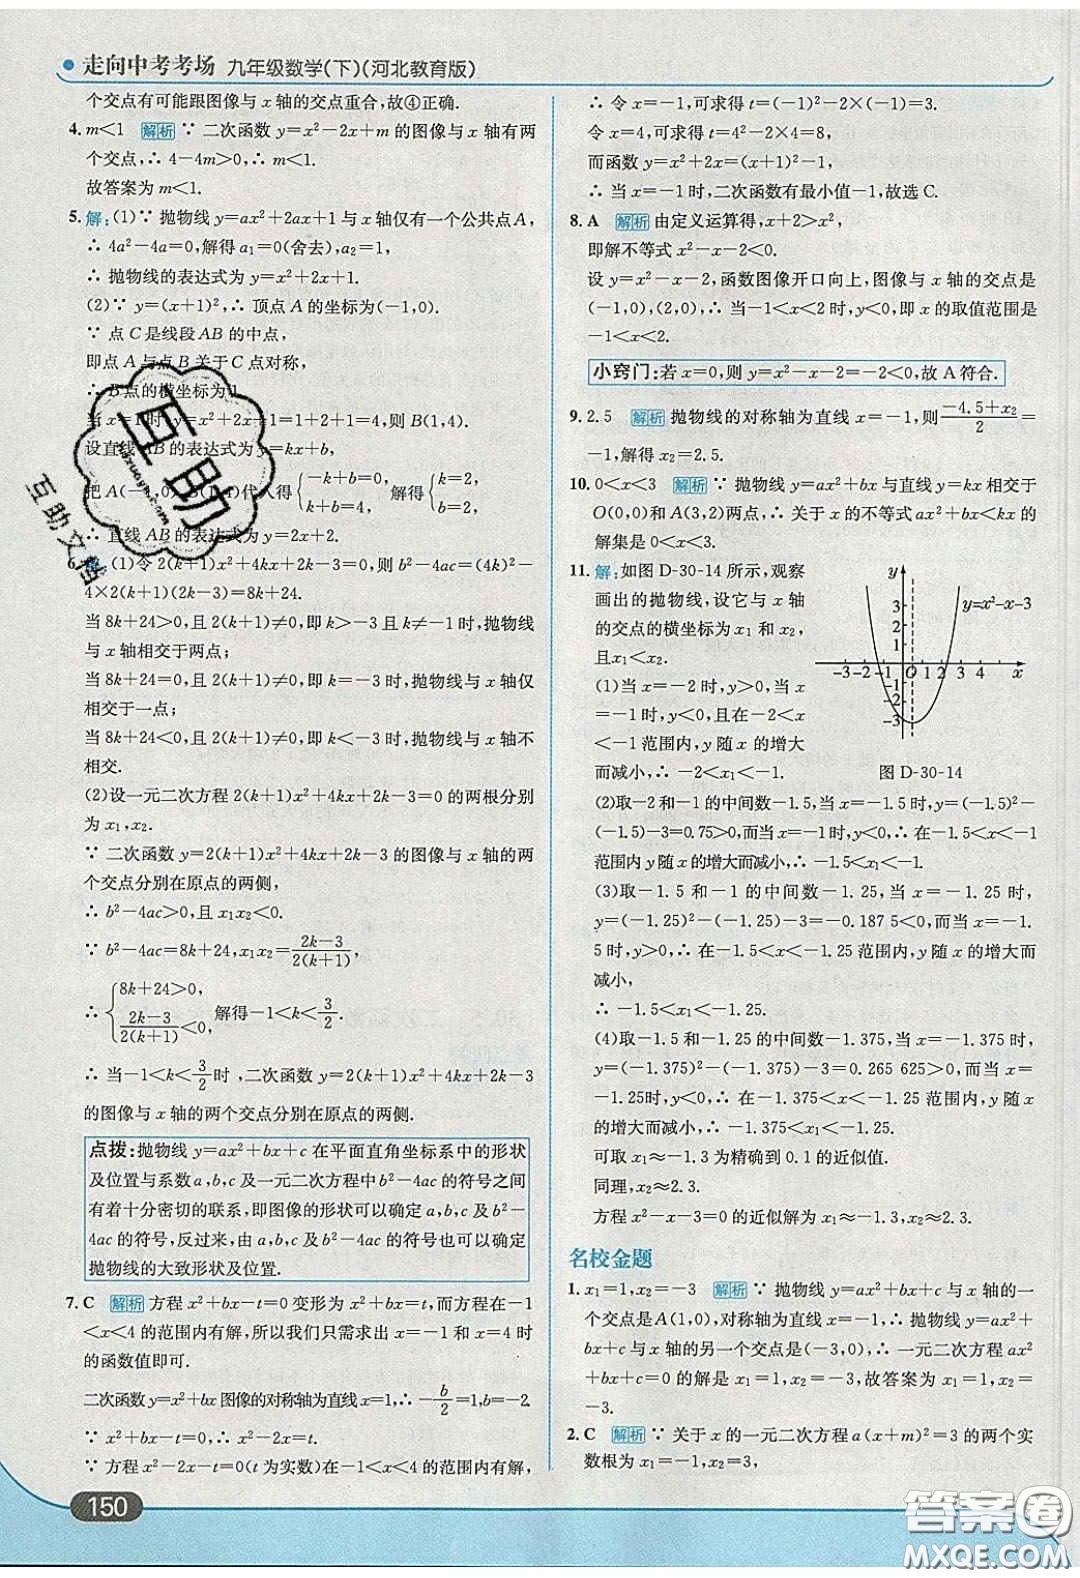 走向中考考场 九年级数学(下)(河北教育版)
个交点有可能跟图像与 x 轴的交点重合,故④正确.
4. m<1 解析 ∵ 二次函数 y=x²-2x+m 的图像与 x 轴有两
个交点,∴ 4-4m>0,∴ m<1.
故答案为 m<1.
5. 解:(1)∵ 抛物线 y=ax²+2ax+1 与 x 轴仅有一个公共点 A,
∴ 4a²-4a=0,解得 a₁=0(舍去),a₂=1,
∴ 抛物线的表达式为 y=x²+2x+1.
(2)∵ y=(x+1)²,∴ 顶点 A 的坐标为(-1,0).
∵ 点 C 是线段 AB 的中点,
即点 A 与点 B 关于 C 点对称,
∴ B 点的横坐标为 1,
当 x=1 时,y=x²+2x+1=1+2+1=4,则 B(1,4).
设直线 AB 的表达式为 y=kx+b,
把 A(-1,0),B(1,4)代入得 {-k+b=0, k+b=4, 解得 {k=2, b=2,
∴ 直线 AB 的表达式为 y=2x+2.
6. 解:(1)令 2(k+1)x²+4kx+2k-3=0,则 b²-4ac=(4k)²-
4×2(k+1)(2k-3)=8k+24.
当 8k+24>0,且 2(k+1)≠0,即 k>-3 且 k≠-1 时,抛物线
与 x 轴相交于两点;
当 8k+24=0,且 2(k+1)≠0,即 k=-3 时,抛物线与 x 轴仅
相交于一点;
当 8k+24<0,且 2(k+1)≠0,即 k<-3 时,抛物线与 x 轴不
相交.
(2)设一元二次方程 2(k+1)x²+4kx+2k-3=0 的两根分别
为 x₁,x₂.
∵ 二次函数 y=2(k+1)x²+4kx+2k-3 的图像与 x 轴的两
个交点分别在原点的两侧,
∴ b²-4ac>0,且 x₁x₂<0.
∵ b²-4ac=8k+24,x₁x₂=(2k-3)/(2(k+1)),
∴ {8k+24>0, (2k-3)/(2(k+1))<0, 解得-1<k<3/2.
∴ 当-1<k<3/2时,二次函数 y=2(k+1)x²+4kx+2k-3
的图像与 x 轴的两个交点分别在原点的两侧.
点拨:抛物线 y=ax²+bx+c 在平面直角坐标系中的形状
及位置与系数 a,b,c 及一元二次方程中 b²-4ac 的符号之间
有着十分密切的联系,即图像的形状可以确定 a,b,c 及 b²-
4ac 的符号,反过来,由 a,b,c 及 b²-4ac 的符号也可以确定
抛物线的大致形状及位置.
7. C 解析 方程 x²+bx-t=0 变形为 x²+bx=t,而方程在-1
<x<4 的范围内有解,所以我们只需求出 x=-1 和 x=4 时
的函数值即可.
二次函数 y=x²+bx 图像的对称轴为直线 x=1,∴ -b/2=1,b=-2.
∵ x²+bx-t=0,∴ x²-2x=t.
∵ 方程 x²-2x-t=0(t 为实数)在-1<x<4 的范围内有解,
∴ 令 x=-1,可求得 t=(-1)²-2×(-1)=3.
令 x=4,可求得 t=4²-2×4=8,
而函数 y=x²+2x=(x+1)²-1,
∴ 当 x=-1 时,二次函数有最小值-1,故选 C.
8. A 解析 由定义运算得,x+2>x²,
即解不等式 x²-x-2<0.
设 y=x²-x-2,函数图像开口向上,图像与 x 轴的交点是
(-1,0),(2,0),∴ 当-1<x<2 时,y<0,即 x 的取值范围是
-1<x<2.
小窍门:若 x=0,则 y=x²-x-2=-2<0,故 A 符合.
9. 2.5 解析 抛物线的对称轴为直线 x=-1,则(-4.5+x₂)/2=
-1,解得 x₂=2.5.
10. 0<x<3 解析 ∵ 抛物线 y=ax²+bx 与直线 y=kx 相交于
O(0,0)和 A(3,2)两点,∴ 关于 x 的不等式 ax²+bx<kx 的
解集是 0<x<3.
11. 解:如图 D-30-14 所示,观察
画出的抛物线,设它与 x 轴
的交点的横坐标为 x₁ 和 x₂,
且x₁<x₂.
(1)当 x=-2 时,y>0,当 x
=-1 时,y<0,且在-2<x<
-1 范围内,y 随 x 的增大
而减小,∴ -2<x₁<-1.
y
3
2
1
y=x²-x-3
-3 -2 -1 O 1 2 3 4 x
-1
-2
-3
图 D-30-14
(2)取-2 和-1 的中间数-1.5,当 x=-1.5 时,y=(-1.5)²-
(-1.5)-3=0.75>0,而当 x=-1 时,y<0,∴ 在-1.5<x<-1
范围内 y 随 x 的增大而减小,∴ -1.5<x₁<-1.
(3)取-1.5 和-1 的中间数-1.25,当 x=-1.25 时,
y=(-1.25)²-(-1.25)-3=-0.187 5<0,而当 x=-1.
5 时,y>0,∴ 在-1.5<x<-1.25 范围内,y 随 x 的增大
而减小,
∴ -1.5<x₁<-1.25.
(4)取-1.5 和-1.25 的中间数-1.375,当 x=-1.375 时,
y=(-1.375)²-(-1.375)-3=0.265 625>0,而当 x=
-1.25 时,y<0,∴ 在-1.375<x<-1.25 范围内,y 随 x
的增大而减小,∴ -1.375<x₁<-1.25.
可取 x₁≈-1.3 为精确到 0.1 的近似值.
同理,x₂≈2.3.
方程 x²-x-3=0 的近似解为 x₁≈-1.3,x₂≈2.3.
名校金题
1. x₁=1,x₂=-3 解析 ∵ 抛物线 y=ax²+bx+c 与 x 轴的一
个交点是 A(1,0),对称轴为直线 x=-1,∴ 抛物线 y=ax²+
bx+c 与 x 轴的另一个交点是(-3,0),∴ 一元二次方程 ax²
+bx+c=0 的解是 x₁=1,x₂=-3,故答案为 x₁=1,x₂=
-3.
2. C 解析 ∵ 关于 x 的一元二次方程 a(x+m)²=3 的两个实
数根为 x₁=-1,x₂=3,
150
互助
互助文档
答案圈
MXQE.COM